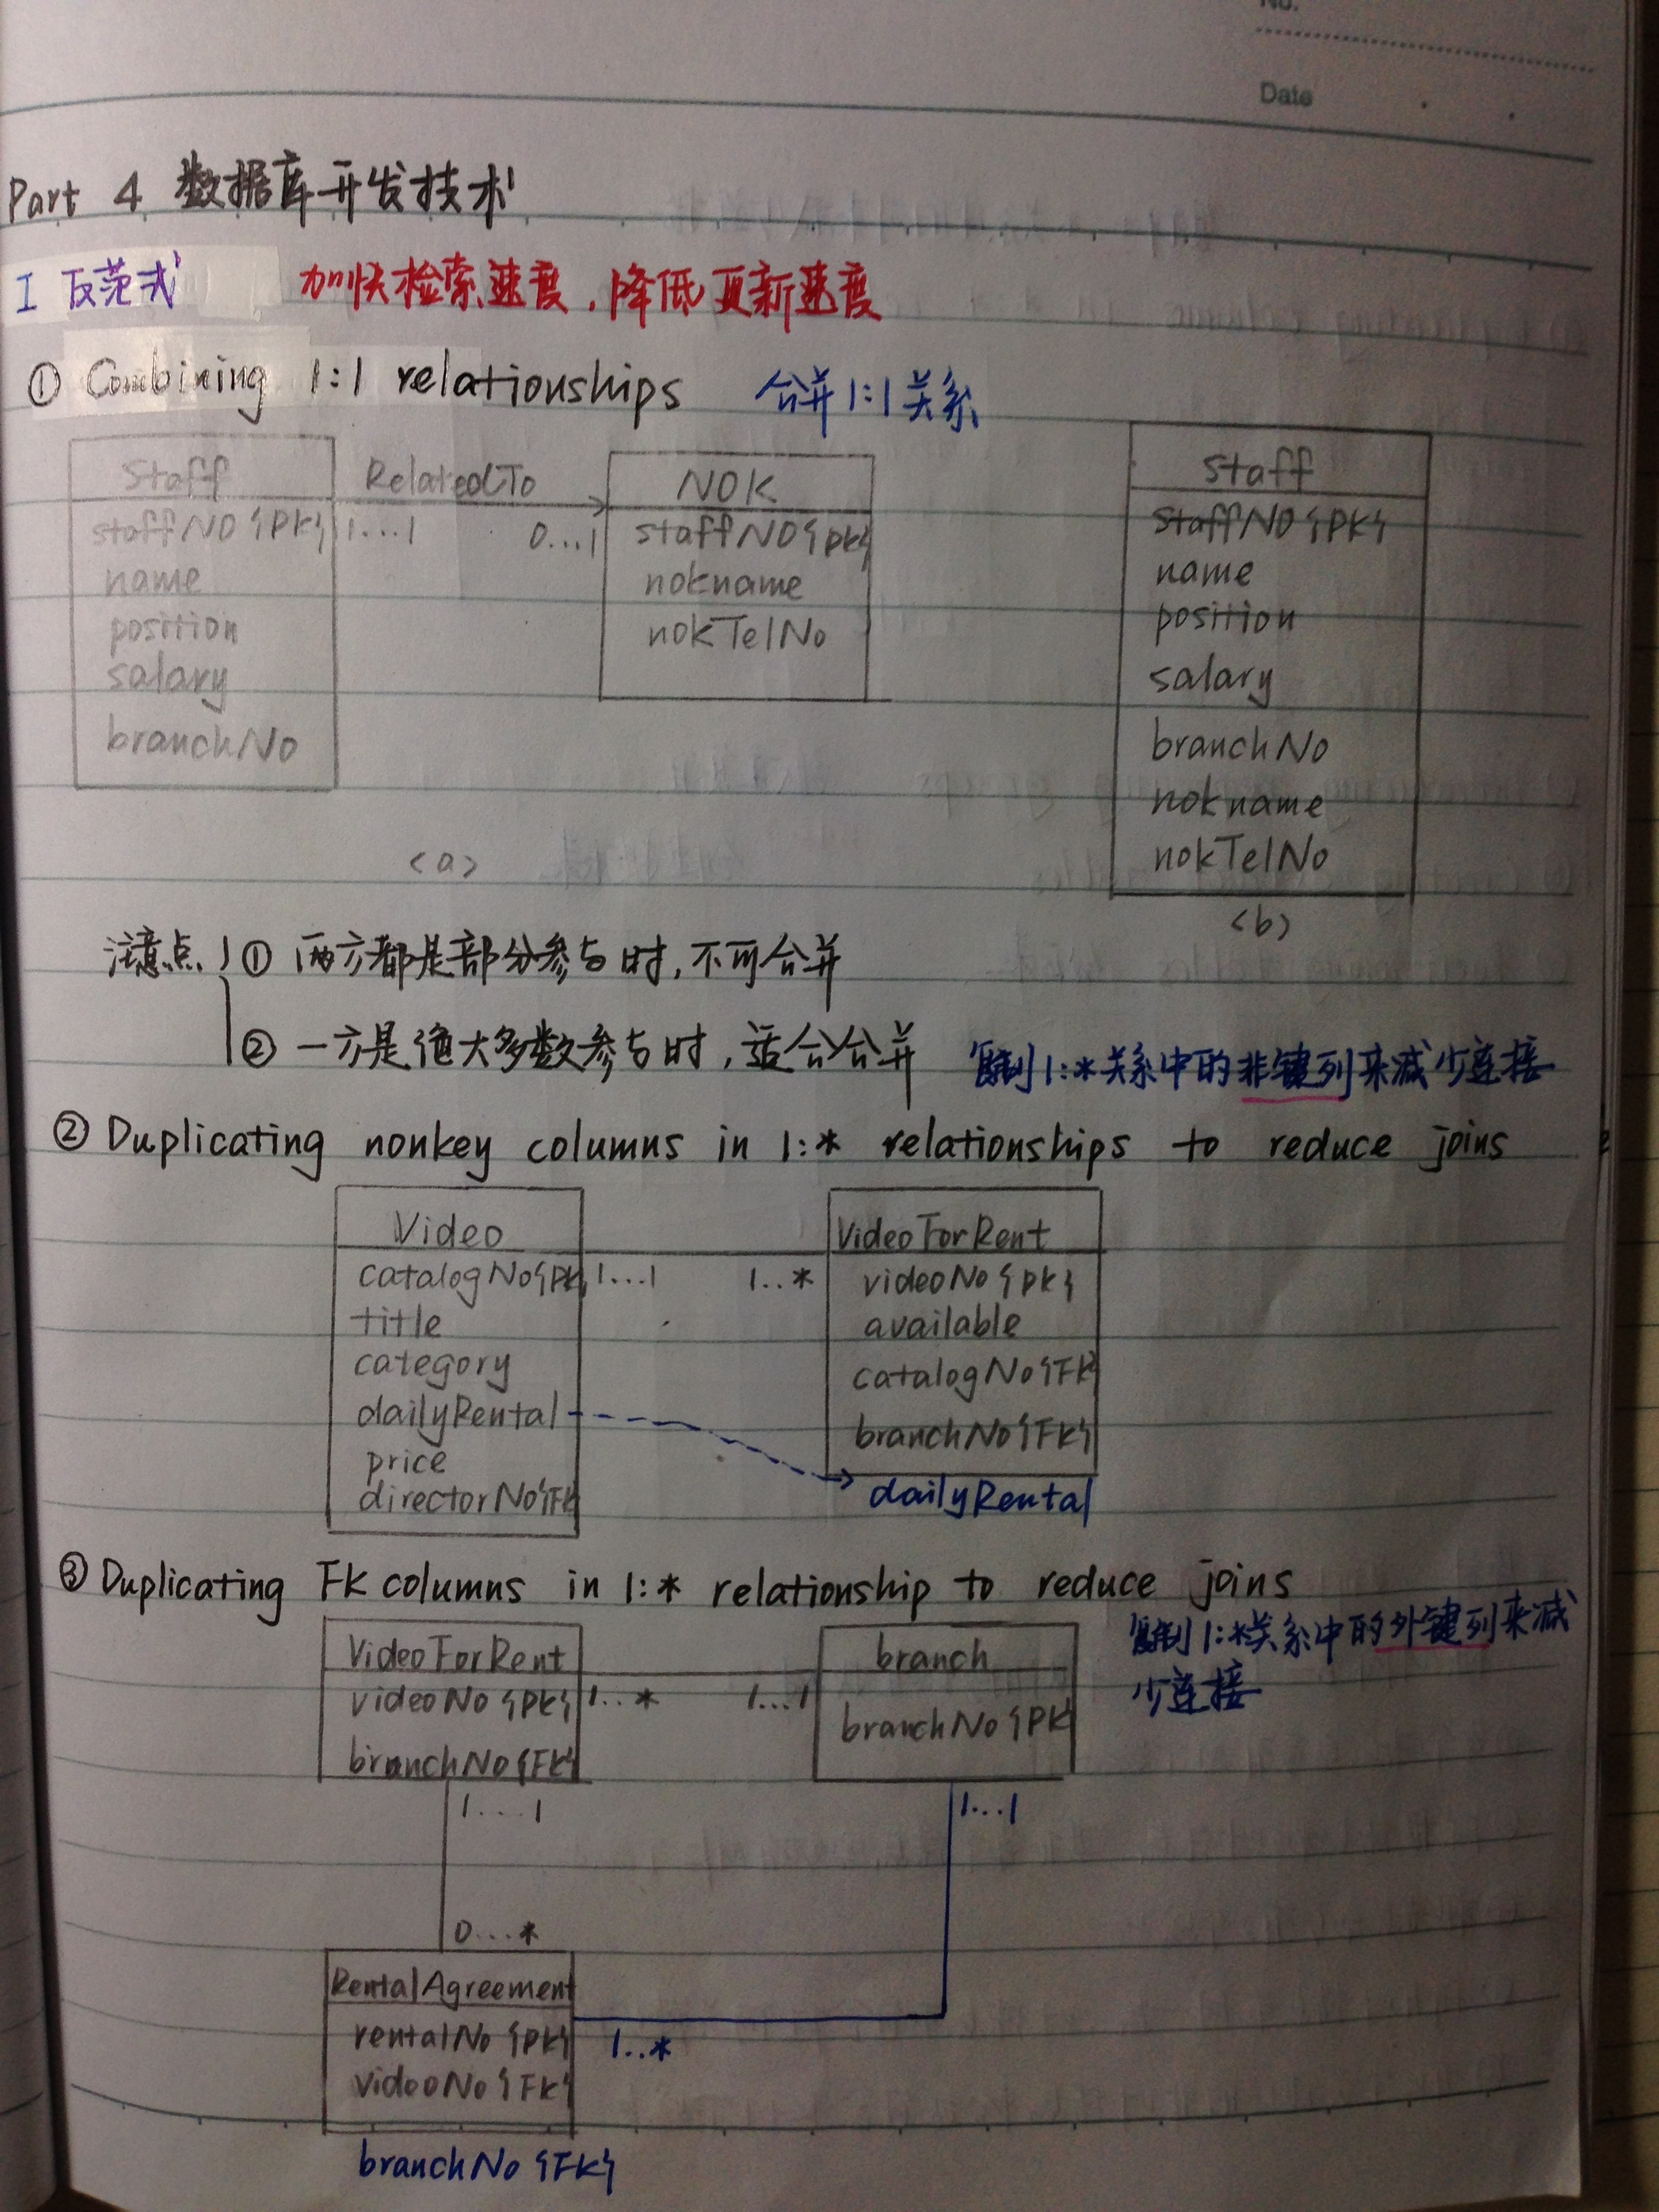 No.
Date
Part 4 数据库开发技术
I 反范式 加快检索速度,降低更新速度
① Combining 1:1 relationships 合并1:1关系
Staff
staffNO {PK}
name
position
salary
branchNo
RelatedTo
1...1 0...1
NOK
staffNO {PK}
nokname
nokTelNo
<a>
Staff
staffNO {PK}
name
position
salary
branchNo
nokname
nokTelNo
<b>
注意点 ① 两方都是部分参与时,不可合并
② 一方是绝大多数参与时,适合合并
复制1:*关系中的非键列来减少连接
② Duplicating nonkey columns in 1:* relationships to reduce joins
Video
catalogNo {PK
title
category
dailyRental
price
directorNo {FK
1...1 1..*
VideoForRent
videoNo {PK}
available
catalogNo {FK
branchNo {FK}
dailyRental
③ Duplicating FK columns in 1:* relationship to reduce joins
复制1:*关系中的外键列来减
少连接
VideoForRent
videoNo {PK}
branchNo {FK}
1..* 1...1
branch
branchNo {PK
1....1
1...1
0...*
RentalAgreement
rentalNo {PK}
videoNo {FK}
1..*
branchNo {FK}